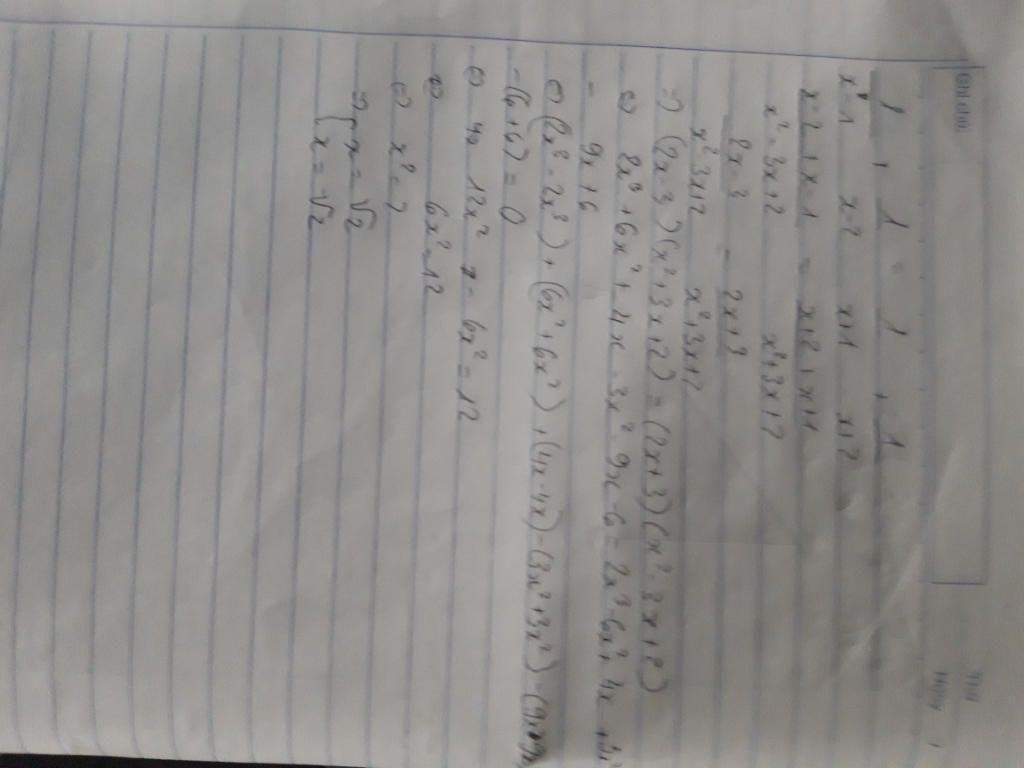 1/(x-1) + 1/(x-2) = 1/(x+1) + 1/(x+2)
(x-2+x-1)/(x²-3x+2) = (x+2+x+1)/(x²+3x+2)
(2x-3)/(x²-3x+2) = (2x+3)/(x²+3x+2)
=> (2x-3)(x²+3x+2) = (2x+3)(x²-3x+2)
⇔ 2x³+6x²+4x-3x²-9x-6 = 2x³-6x²+4x+3x²
- 9x+6
⇔ (2x³-2x³)+(6x²+6x²)+(4x-4x)-(3x²+3x²)-(9x
-(6+6)=0
⇔ 12x² - 6x² = 12
⇔ 6x² = 12
⇔ x² = 2
=> { x = √2
{ x = -√2